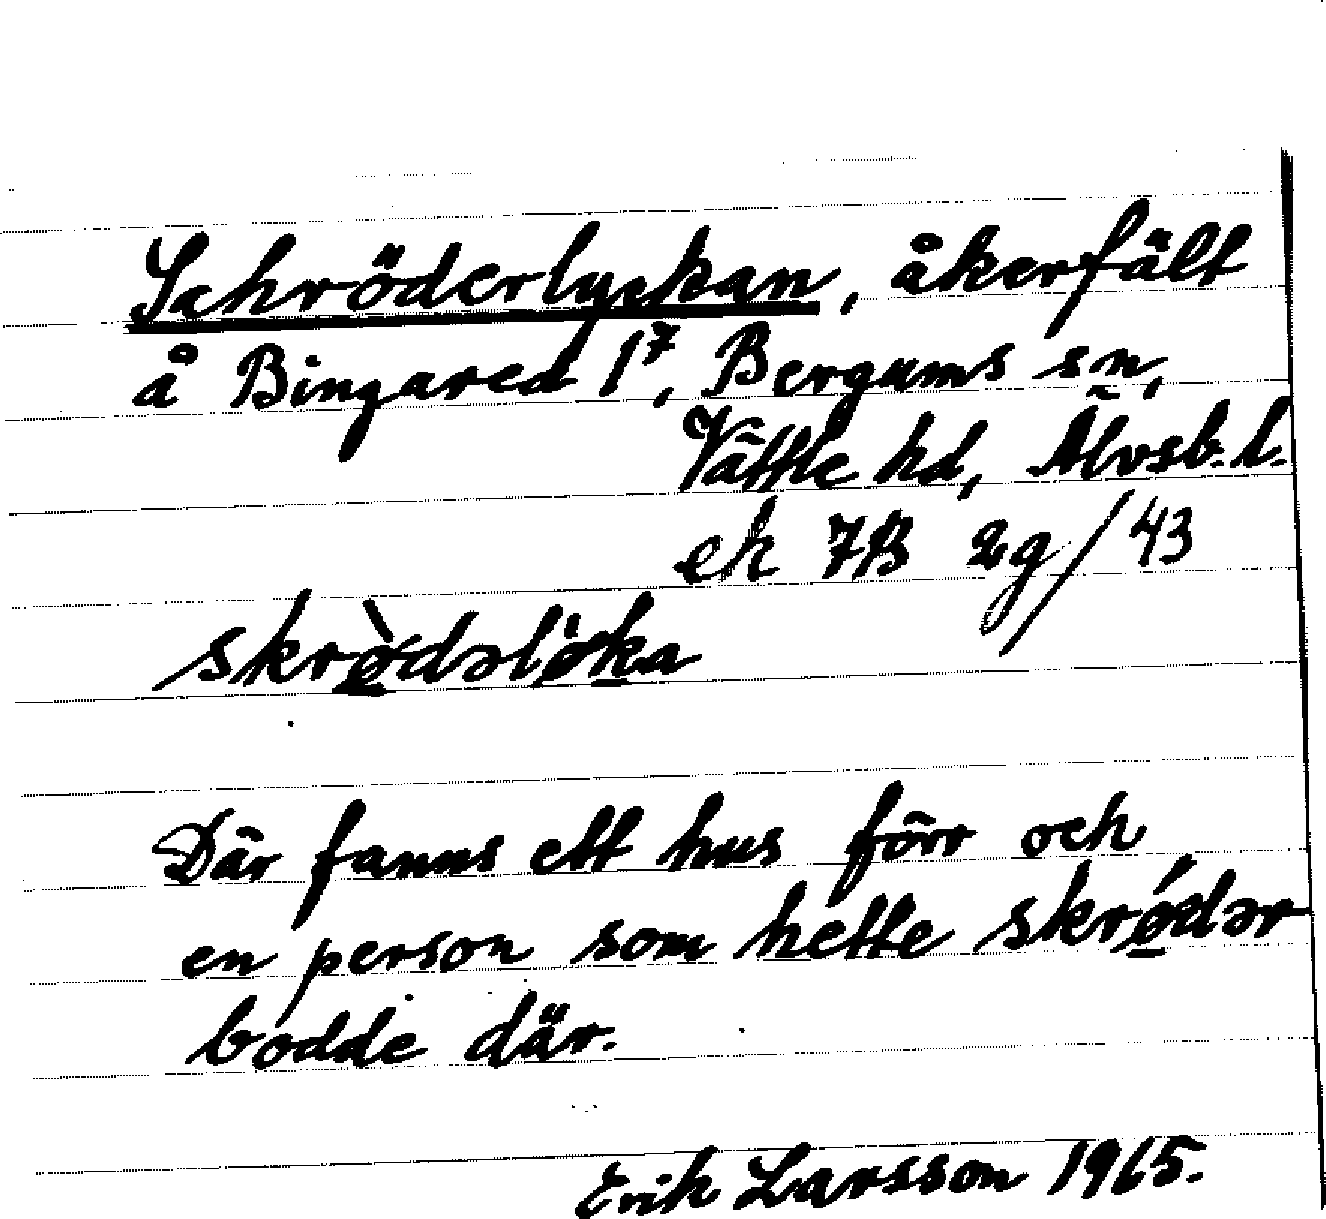 Schröderlyckan, åkerfält
å Bingared 1⁷, Bergums sn,
Vättle hd, Älvsb. l.
ek 7B 2g/43
skrø̀dəlø̀ka
Där fanns ett hus förr och
en person som hette skrǿdər
bodde där.
Erik Larsson 1965.